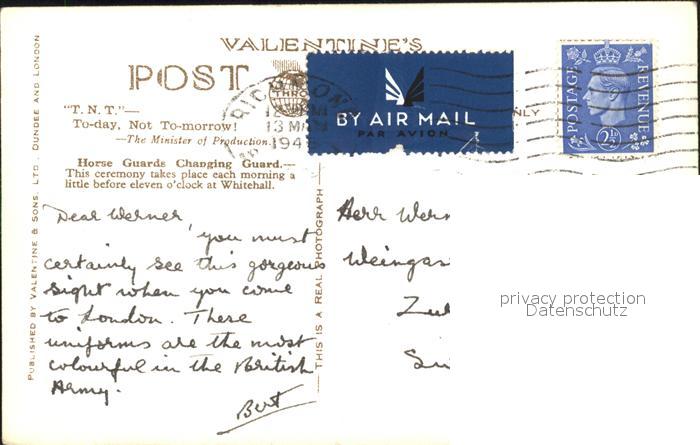 VALENTINE'S
POST
"T. N. T."—
To-day, Not To-morrow!
—The Minister of Production.
Horse Guards Changing Guard.—
This ceremony takes place each morning a
little before eleven o'clock at Whitehall.
BY AIR MAIL
PAR AVION
NLY
13 MAY
194
POSTAGE
REVENUE
2½D
PUBLISHED BY VALENTINE & SONS, LTD., DUNDEE AND LONDON
THIS IS A REAL PHOTOGRAPH
Dear Werner,
you must
certainly see this gorgeous
sight when you come
to London. These
uniforms are the most
colourful in the British
Army.
Bert
Herr Wern
Weingas
Zu
privacy protection
Datenschutz